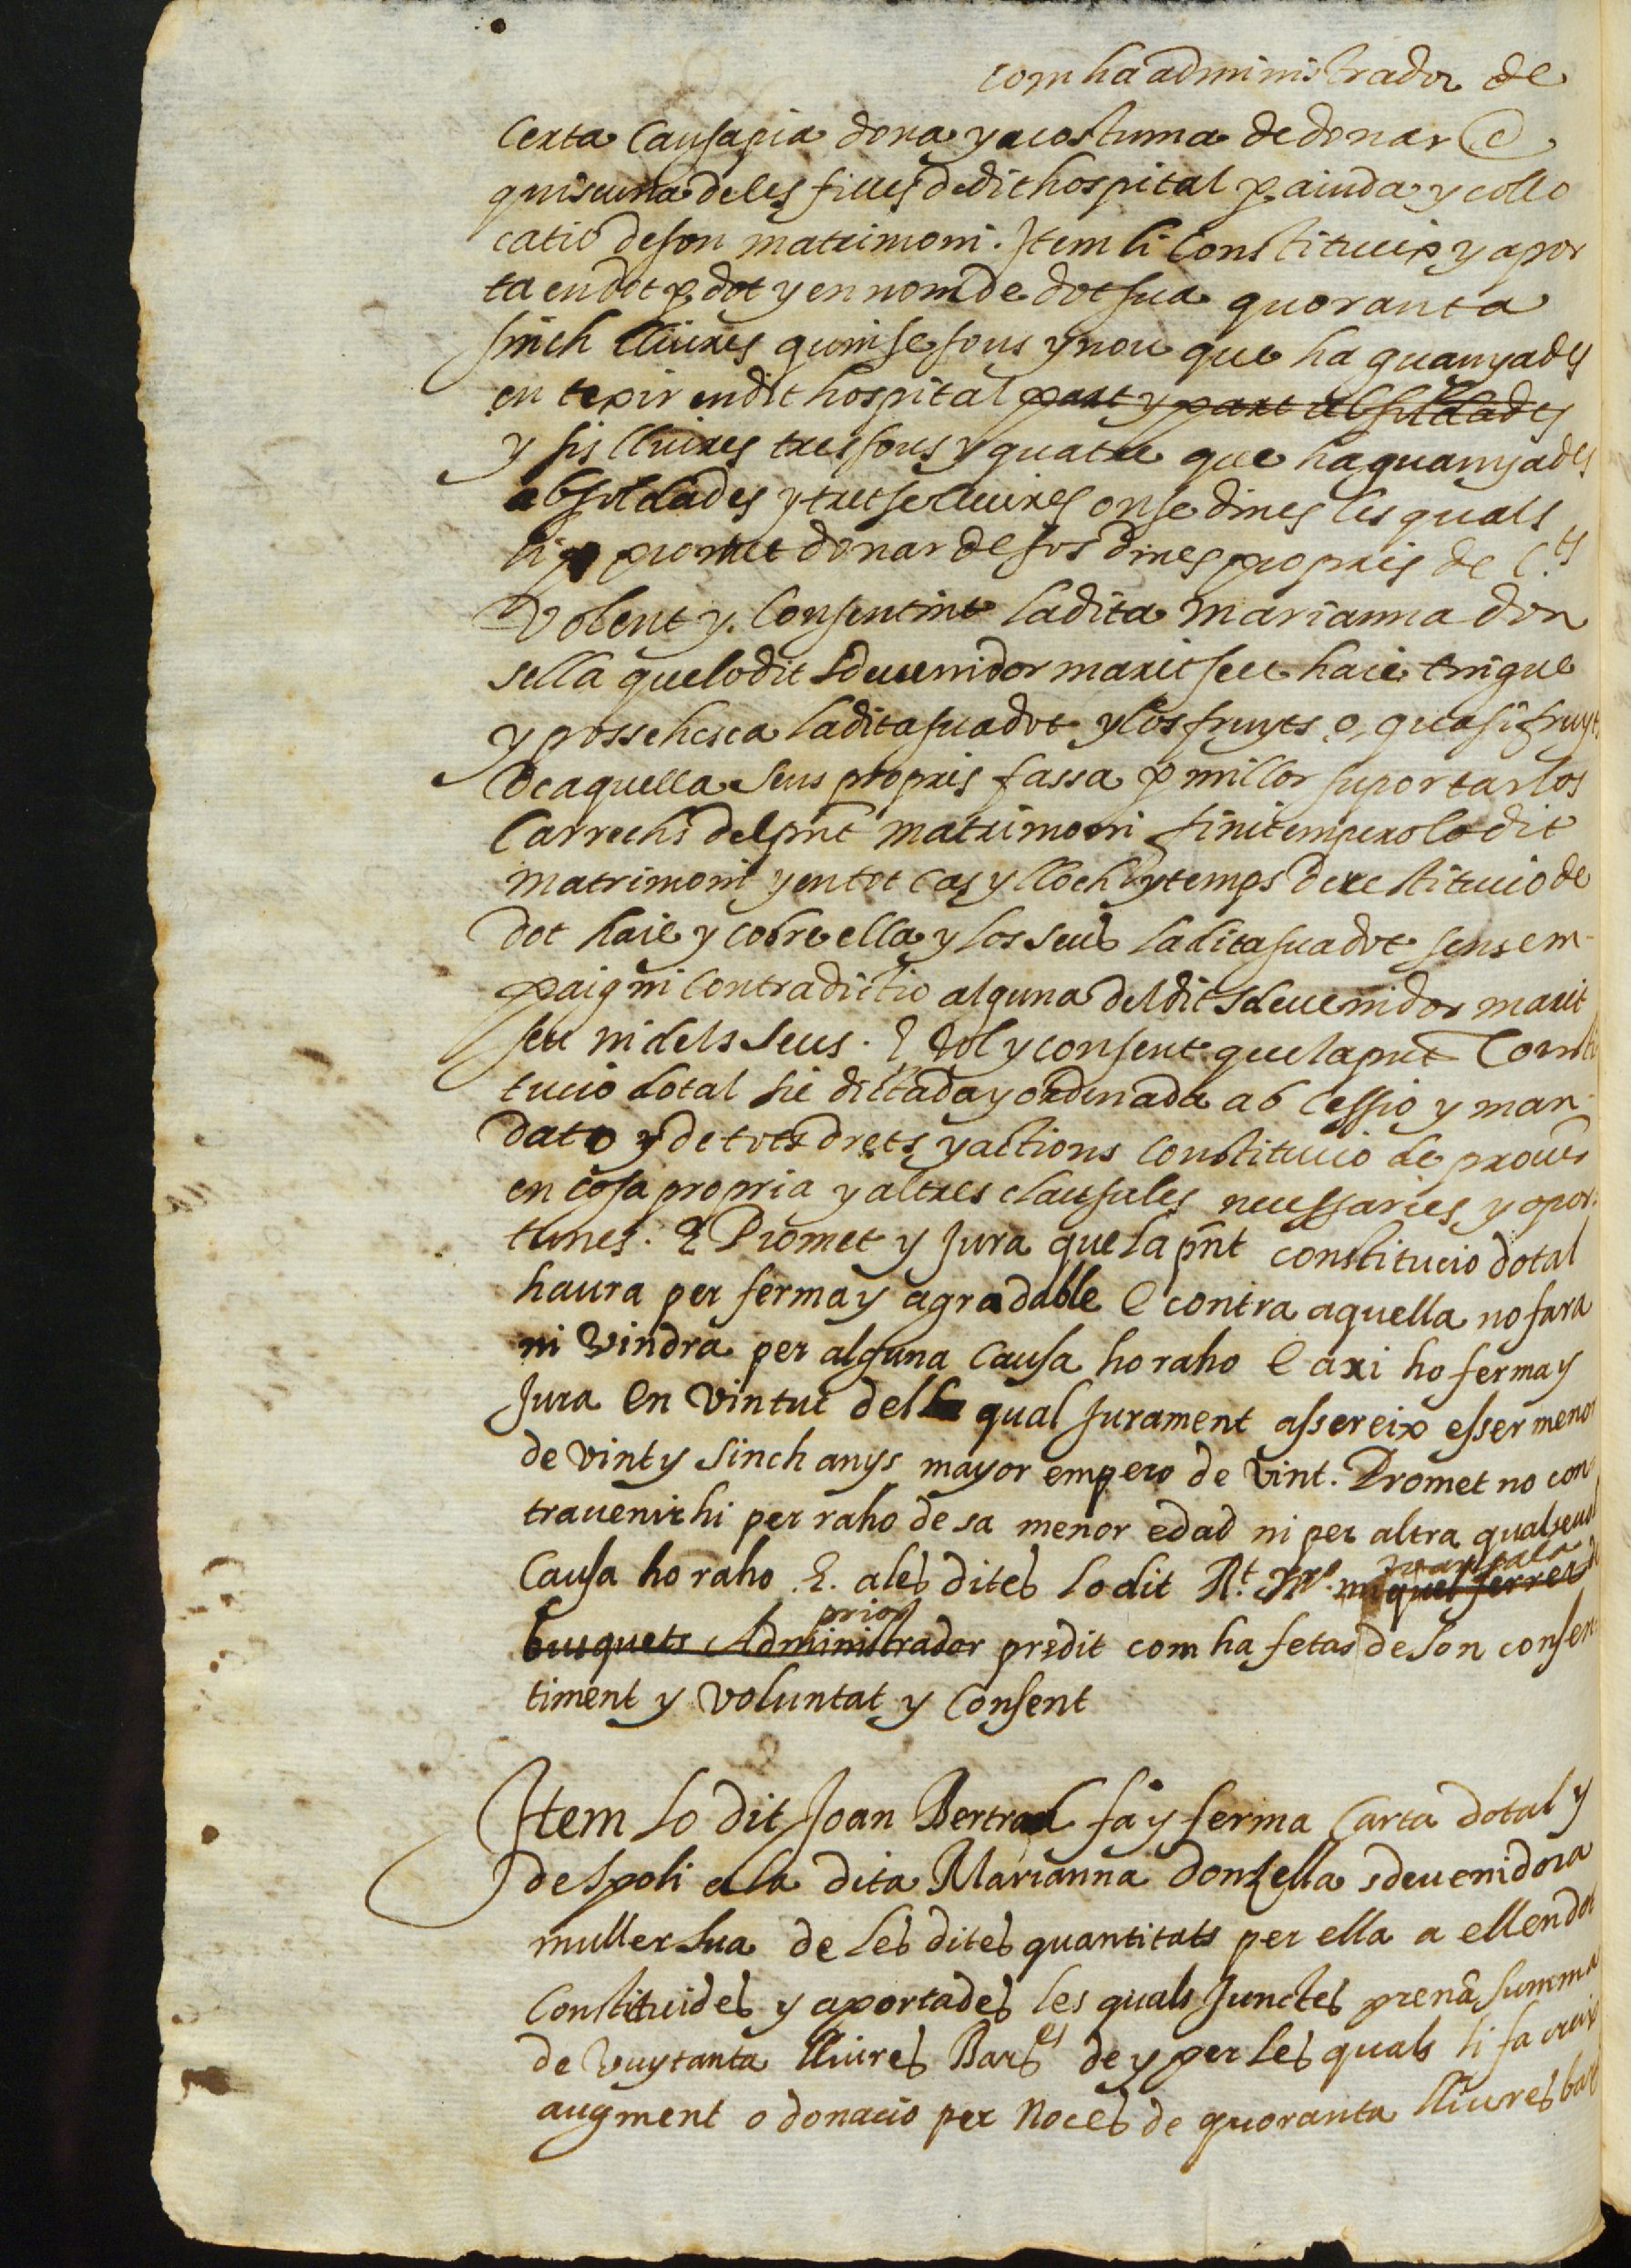 com ha administrador de
certa Causapia dona y acostuma de donar e
quiscuna de les filles de dit hospital p. aiuda y collo
catio de son matrimoni. Item li Constitueix y apor
ta en dot p. dot y en nom de dot sua quoranta
sinch lliures quinse sous y nou que ha guanyades
en texir en dit hospital part y part ab soldades
y sis lliures tres sous y quatre que ha guanyades
ab soldades y lliures onse dines les quals
li promet donar de sos dines propris de
Volent y. Consentint la dita Marianna don
sella que lo dit sdevenidor marit seu haie tingue
y possehesca la dita sua dot y los fruyts o, quasi fruyts
de aquella seus propris fassa p millor suportar los
Carrechs del pnt matrimoni finit empero lo dit
matrimoni y en tot cas y lloch y temps de restitucio de
dot haie y cobre ella y los seus la dita sua dot sens em-
paig ni Contradictio alguna del dit sdevenidor marit
seu ni dels seus. E vol y consent que la pnt Consti
tucio dotal sie dictada y ordenada ab cessio y man-
dato y de tots drets y actions Constitucio de procur
en cosa propria y altres clausules necessaries y opor:
tunes. E Promet y Jura que la pnt constitucio dotal
haura per ferma y agradable e contra aquella no fara
ni vindra per alguna causa ho raho e axi ho ferma y
Jura en vintut del qual Jurament assereix esser menor
de vint y sinch anys mayor empero de vint. Promet no con
travenir hi per raho de sa menor edad ni per altra qualsevol
Causa ho raho. E. a les dites lo dit Rt. Mre. miquel ferrer
prior
busquets Administrador predit com ha fetas de son consen:
timent y voluntat y Consent
Item lo dit Joan Bertral fa y ferma Carta dotal y
de spoli a la dita Marianna donzella sdevenidora
muller sua de les dites quantitats per ella a ell en dot
Constituides y aportades les quals junctes prenen summa
de vuytanta lliures Bars es de y per les quals li fa creix
augment o donacio per noces de quoranta lliures bars